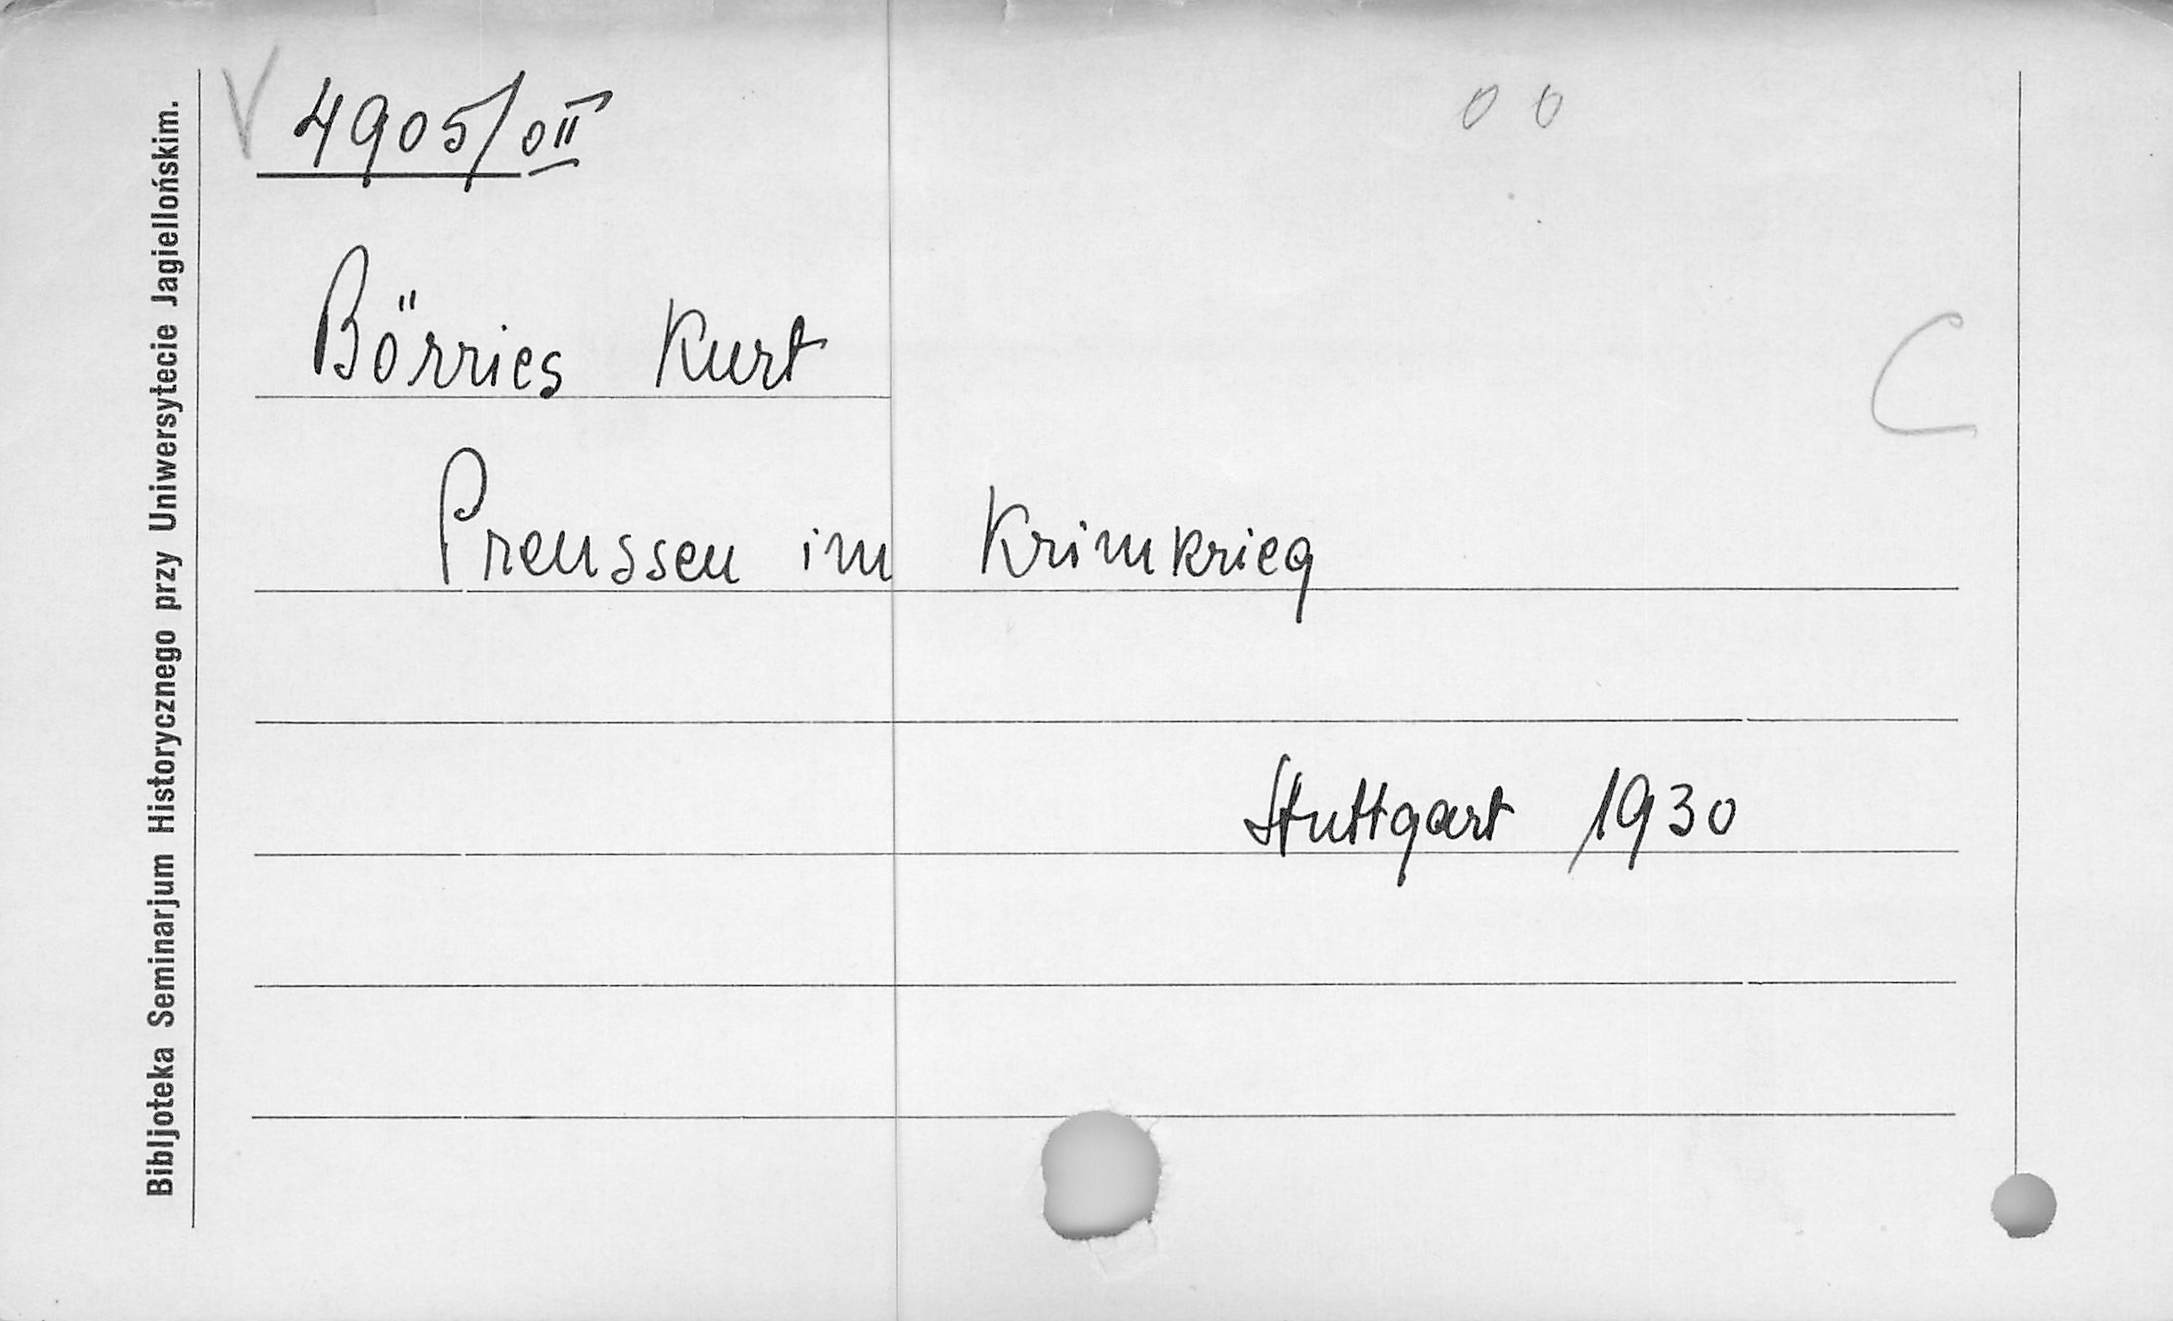 V 4905/oII
o o
Börries Kurt
C
Preussen im Krimkrieg
Stuttgart 1930
Bibljoteka Seminarjum Historycznego przy Uniwersytecie Jagiellońskim.